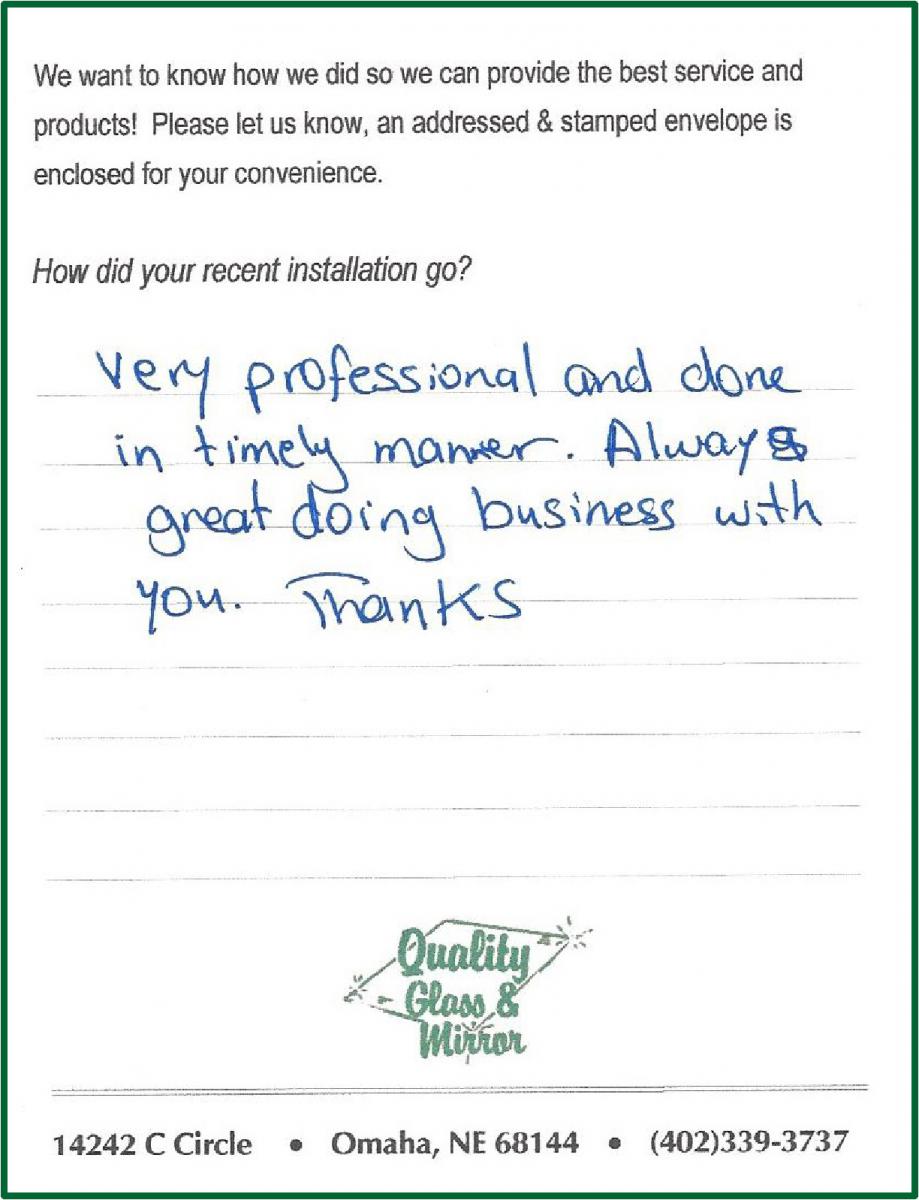 We want to know how we did so we can provide the best service and
products! Please let us know, an addressed & stamped envelope is
enclosed for your convenience.
How did your recent installation go?
Very professional and done
in timely manner. Always
great doing business with
you. Thanks
Quality
Glass &
Mirror
14242 C Circle • Omaha, NE 68144 • (402)339-3737